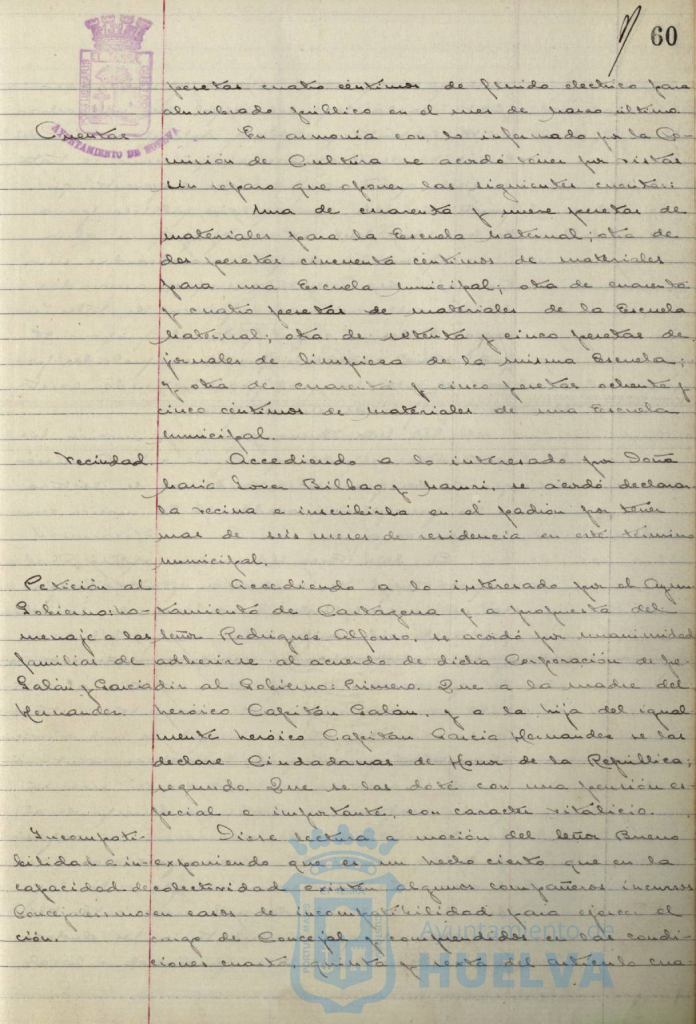 60
AYUNTAMIENTO DE HUELVA
pesetas cuatro céntimos de fluido electrico para
alumbrado público en el mes de marzo último
Cuentas
En armonía con lo informado por la Co-
misión de Cultura se acordó tener por vistas
sin reparo que oponer las siguientes cuentas:
Una de cuarenta y nueve pesetas de
materiales para la Escuela Maternal; otra de
dos pesetas cincuenta céntimos de materiales
para una Escuela municipal; otra de cuarenta
y cuatro pesetas de materiales de la Escuela
Maternal; otra de setenta y cinco pesetas de
jornales de limpieza de la misma Escuela;
y otra de cuarenta y cinco pesetas ochenta y
cinco céntimos de materiales de una Escuela
municipal.
Vecindad
Accediendo a lo interesado por Doña
María Bilbao y se acordó declarar
la vecina e inscribirla en el padrón por tener
mas de seis meses de residencia en este término
municipal.
Petición al
Gobierno: ho-
menaje a las
familias de
Galán y García
Hernandez.
Accediendo a lo interesado por el Ayun
tamiento de Cartagena y a propuesta del
Señor Rodriguez Alfonso, se acordó por unanimidad
adherirse al acuerdo de dicha Corporación de pe-
dir al Gobierno: Primero. Que a la madre del
heróico Capitán Galán, y a la hija del igual
mente heróico Capitán García Hernandez se las
declare Ciudadanas de Honor de la República;
segundo. Que se las dote con una pensión es-
pecial e importante, con caracter vitalicio.
Incompati-
bilidad e in-
capacidad de
Concejales: mo-
ción.
Diose lectura a moción del Señor Bueno
exponiendo que es un hecho cierto que en la
colectividad existen algunos compañeros incursos
en casos de incompatibilidad para ejercer el
cargo de Concejal y comprendidos en las condi-
ciones cuarta, quinta y sexta del artículo cua-
Ayuntamiento de
HUELVA